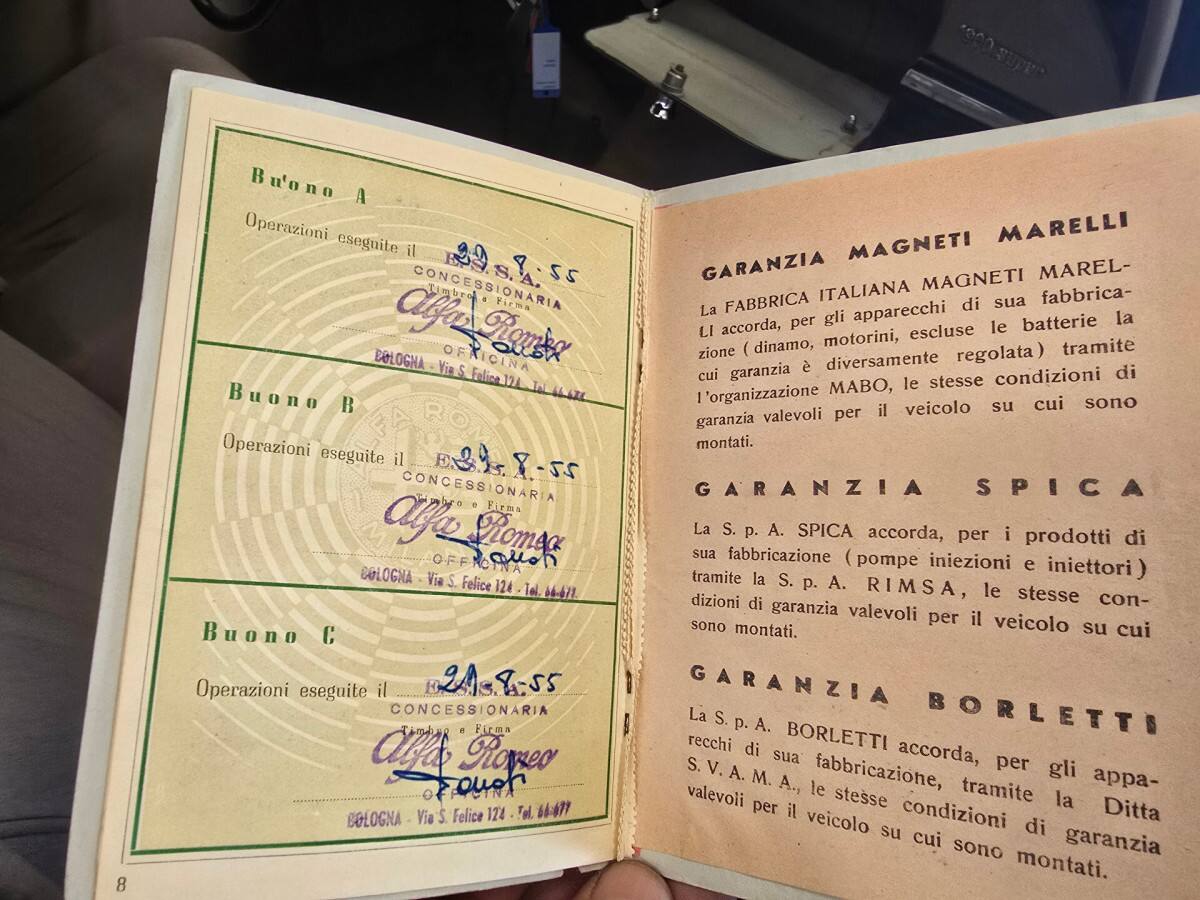 Buono A
Operazioni eseguite il 29-8-55
E.S.S.A.
CONCESSIONARIA
Timbro e Firma
Alfa Romeo
OFFICINA
BOLOGNA - Via S. Felice 124 - Tel. 66-677
Buono B
Operazioni eseguite il 29-8-55
E.S.S.A.
CONCESSIONARIA
Timbro e Firma
Alfa Romeo
OFFICINA
BOLOGNA - Via S. Felice 124 - Tel. 66-677
Buono C
Operazioni eseguite il 29-8-55
E.S.S.A.
CONCESSIONARIA
Timbro e Firma
Alfa Romeo
OFFICINA
BOLOGNA - Via S. Felice 124 - Tel. 66-677
8
1900 super
GARANZIA MAGNETI MARELLI
La FABBRICA ITALIANA MAGNETI MAREL-
LI accorda, per gli apparecchi di sua fabbrica-
zione (dinamo, motorini, escluse le batterie la
cui garanzia è diversamente regolata) tramite
l'organizzazione MABO, le stesse condizioni di
garanzia valevoli per il veicolo su cui sono
montati.
GARANZIA SPICA
La S. p. A. SPICA accorda, per i prodotti di
sua fabbricazione (pompe iniezioni e iniettori)
tramite la S. p. A. RIMSA, le stesse con-
dizioni di garanzia valevoli per il veicolo su cui
sono montati.
GARANZIA BORLETTI
La S. p. A. BORLETTI accorda, per gli appa-
recchi di sua fabbricazione, tramite la Ditta
S. V. A. M. A., le stesse condizioni di garanzia
valevoli per il veicolo su cui sono montati.